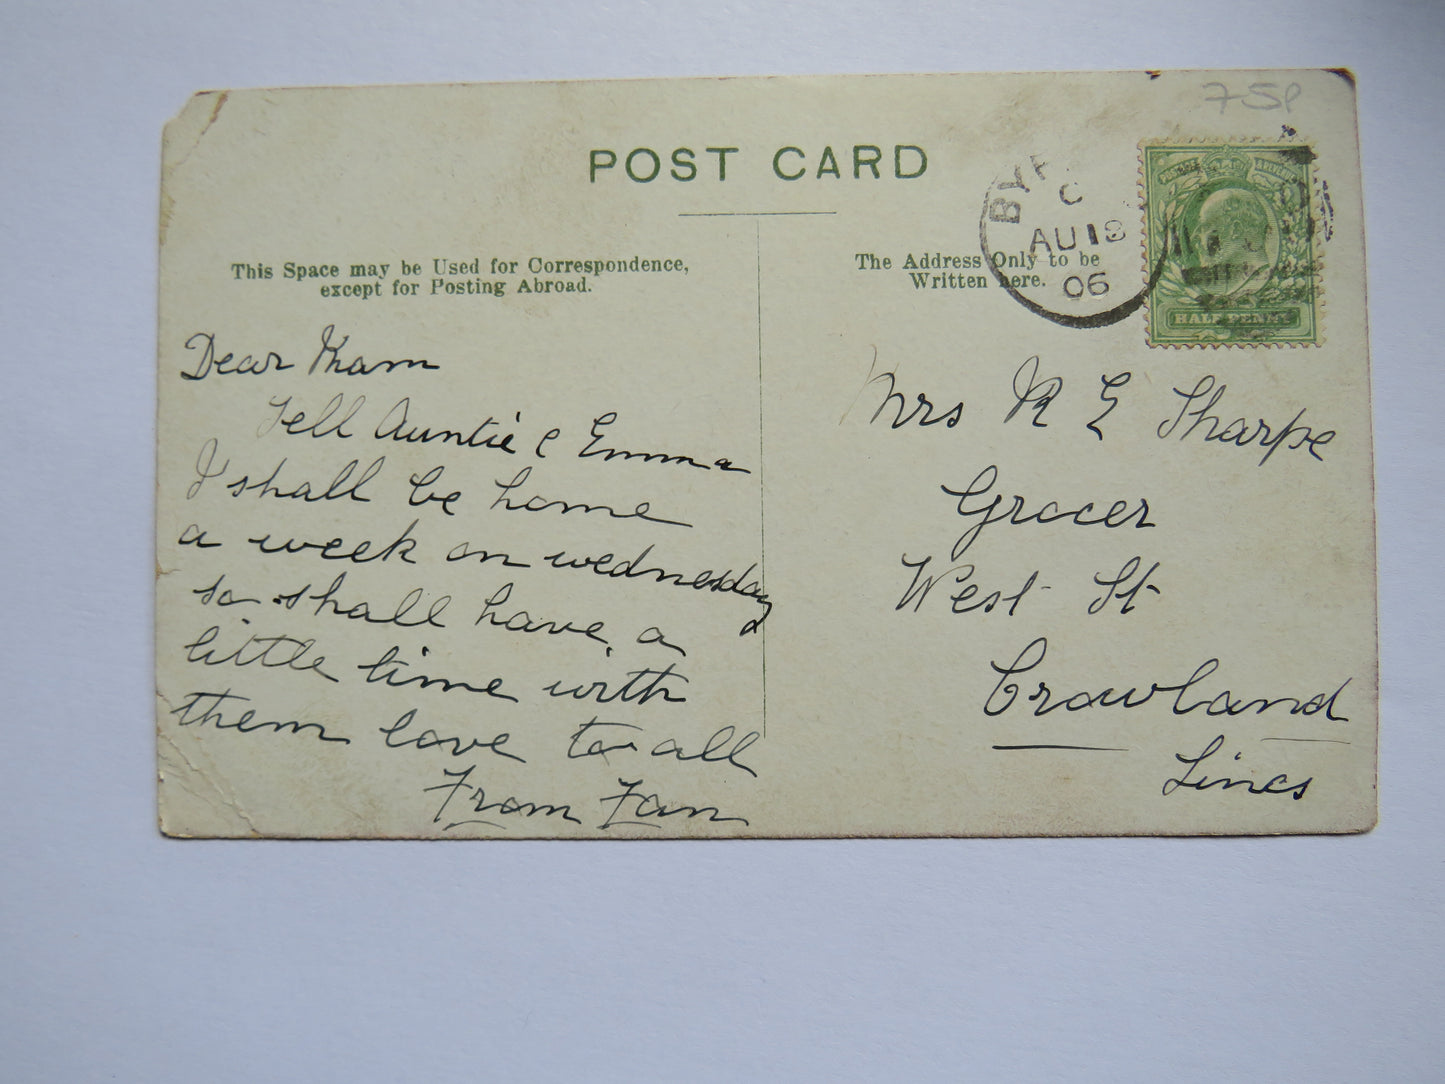 75p
POST CARD
This Space may be Used for Correspondence,
except for Posting Abroad.
The Address Only to be
Written here.
C
AU 18
06
HALF PENNY
Dear Mam
Tell Auntie & Emma
I shall be home
a week on wednesday
so shall have a
little time with
them love to all
From Fan
Mrs R E Sharpe
Grocer
West St
Crowland
Lincs